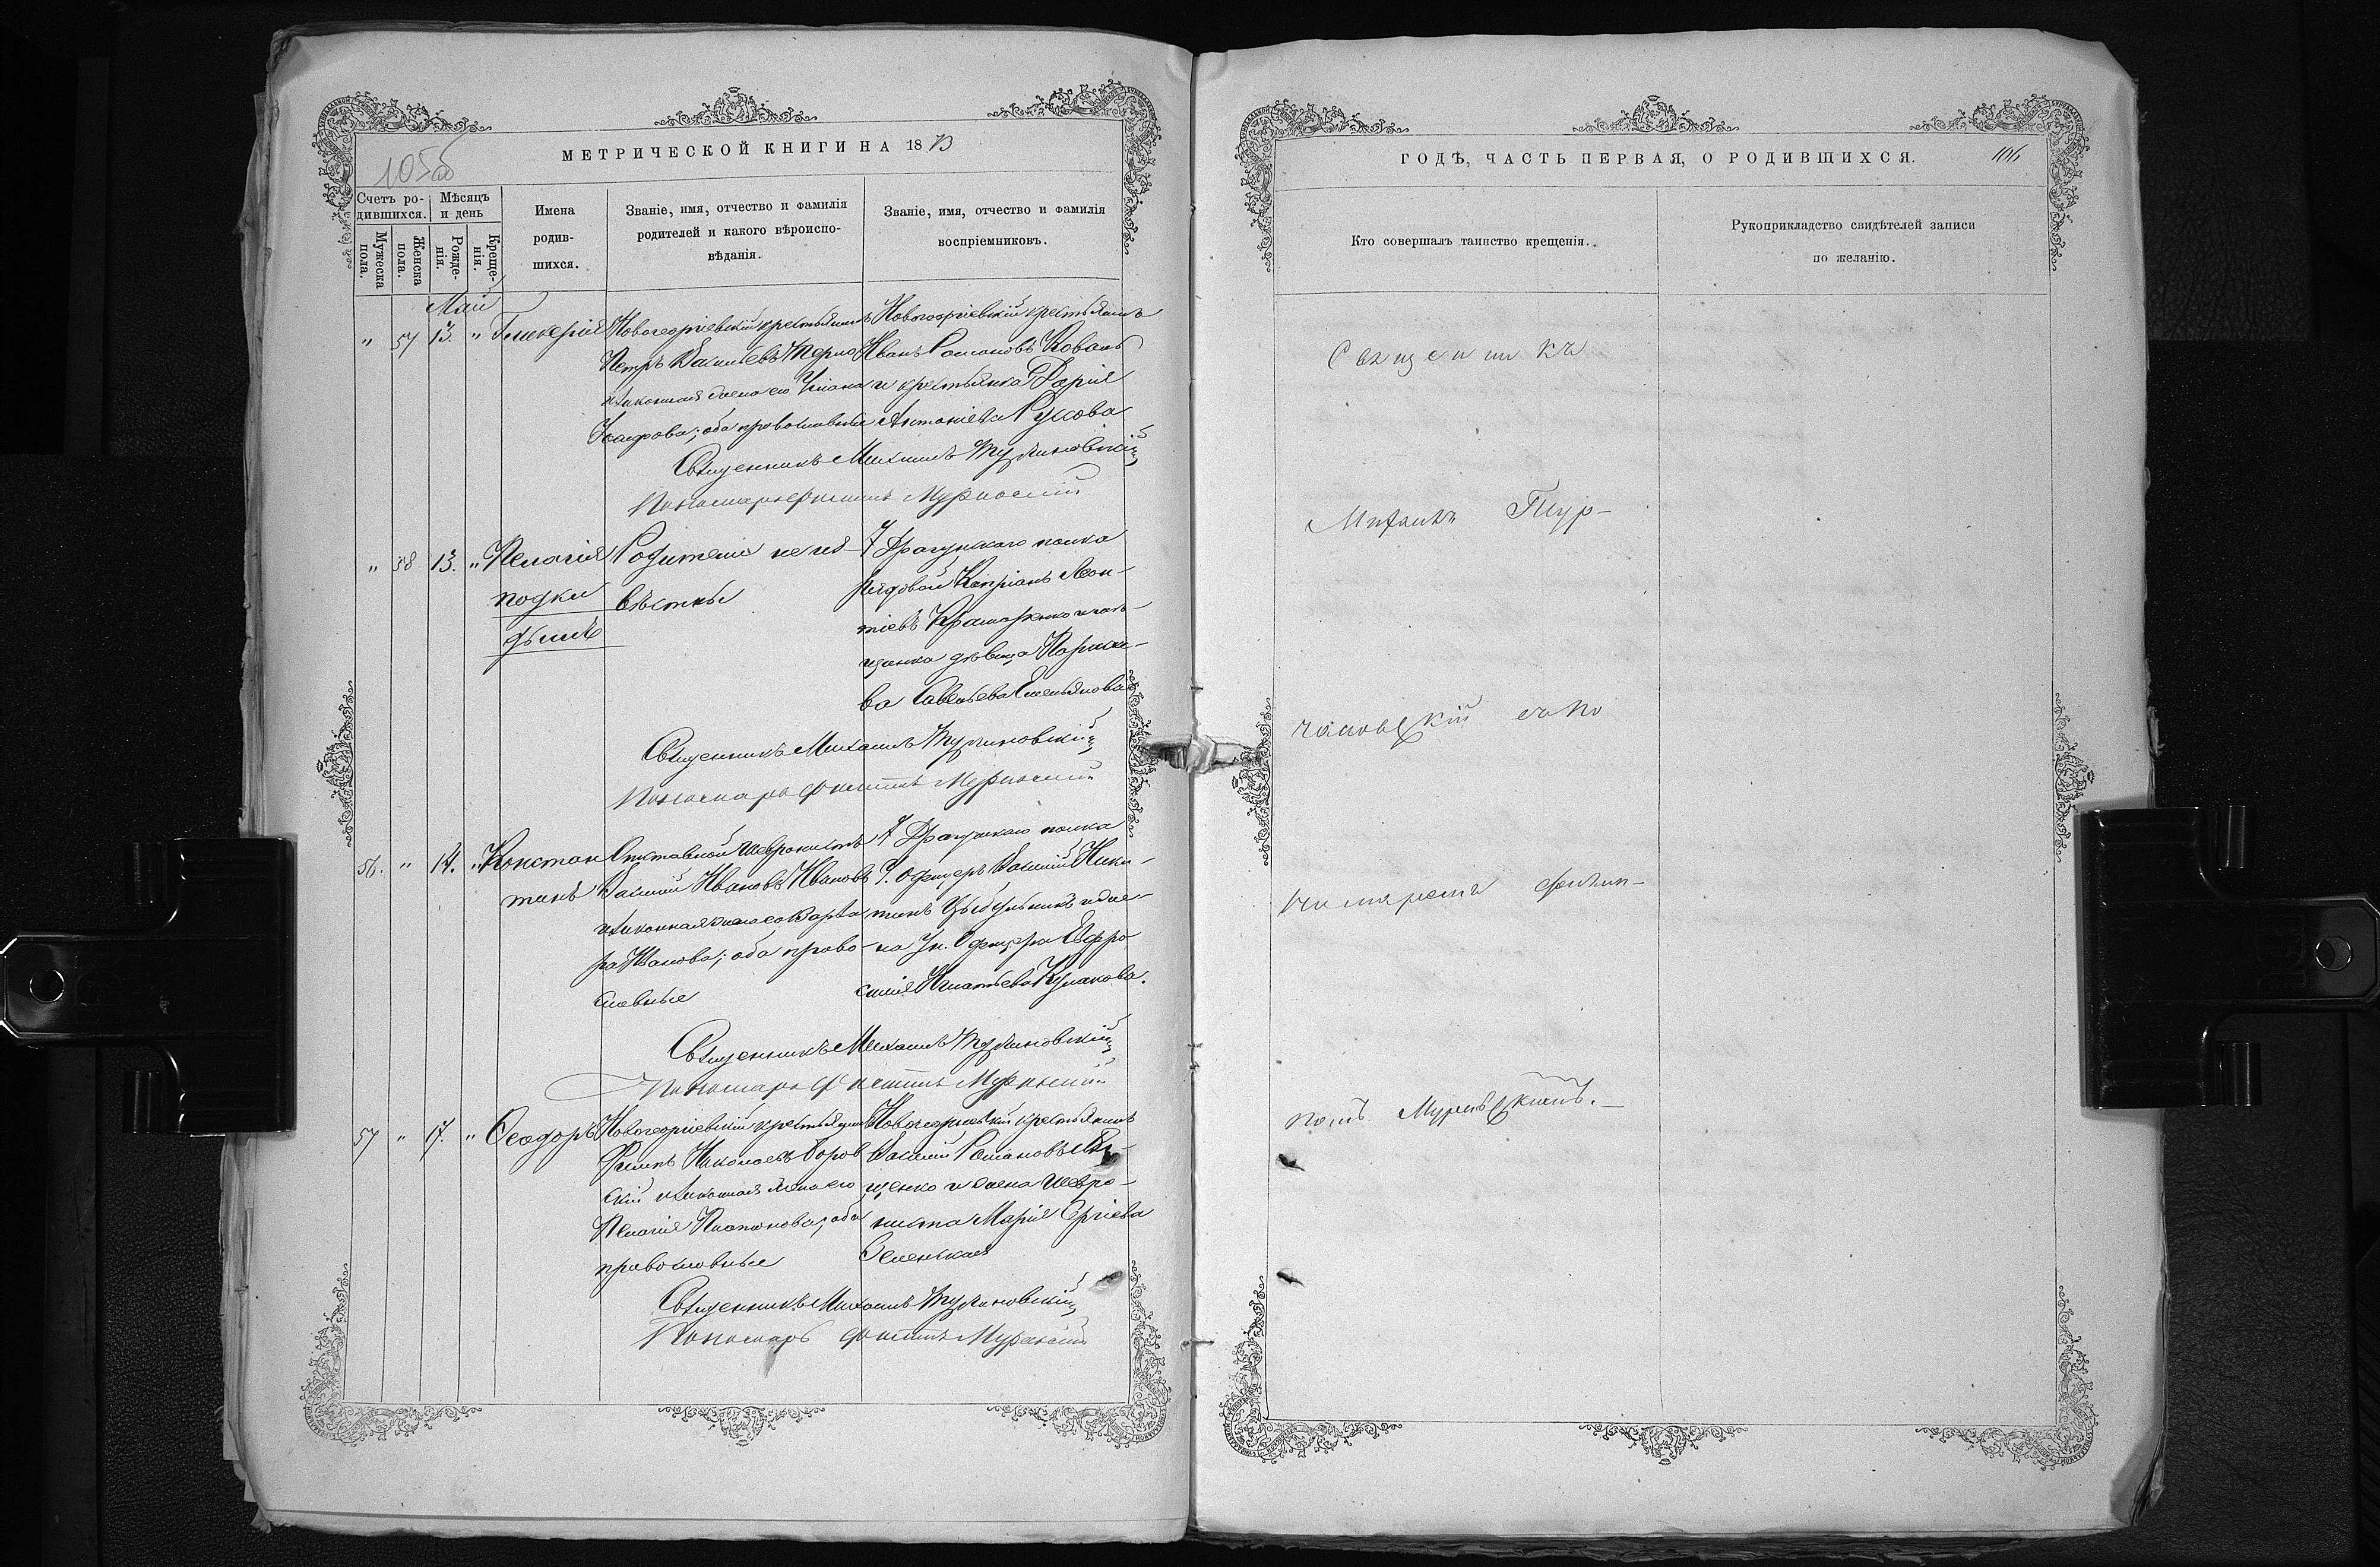 МЕТРИЧЕСКОЙ КНИГИ НА 1873
105об
Счетъ ро-
дившихся.
Мѣсяцъ
и день
Мужеска
пола.
Женска
пола.
Рожде-
нія.
Креще-
нія.
Имена
родив-
шихся.
Званіе, имя, отчество и фамилія
родителей и какого вѣроиспо-
вѣданія.
Званіе, имя, отчество и фамилія
воспріемниковъ.
Май
" 57 13. "
Гликерія
Новогеоргіевскій крестьянинъ
Петръ Васильевъ
и законная жена его
оба православные
Новогеоргіевскій крестьянинъ
Иванъ Романовъ Коваль
и крестьянка Дарія
Антоніева Русова
Священникъ Михаилъ Турчиновскій
Пономарь Филиппъ Мурковскій
" 58 13. "
Пелагія
подки
дышъ
Родители неиз-
вѣстны
7 Драгунскаго полка
рядовой Кипріанъ Леон-
тіевъ Крамаренко и мѣ-
щанка дѣвица
Савельева Емельянова
Священникъ Михаилъ Турчиновскій
Пономарь Филиппъ Мурковскій
56. " 14. "
Констан
тинъ
Отставной
Василій Ивановъ Ивановъ
и законная жена его Варва
ра Иванова; оба право-
славные
7 Драгунскаго полка
У. Офицеръ Василій Ники-
тинъ Цыбульникъ и же-
на Ун. Офицера Евфро
синія Игнатьева Кулакова.
Священникъ Михаилъ Турчиновскій
Пономарь Филиппъ Мурковскій
57 " 17. "
Ѳеодоръ
Новогеоргіевскій крестьянинъ
Филипъ Николаевъ Боров
скій и законная жена его
Пелагія Платонова; оба
православные
Новогеоргіевскій крестьянинъ
Василій Романовъ
щенко и жена шевро-
ниста Марія Сергіева
Семенская
Священникъ Михаилъ Турчиновскій
Пономарь Филиппъ Мурковскій
ГОДѢ, ЧАСТЬ ПЕРВАЯ, О РОДИВШИХСЯ.
106
Кто совершалъ таинство крещенія.
Рукоприкладство свидѣтелей записи
по желанію.
Священникъ
Михаилъ Тур-
чановскій съ по
номаремъ Филип-
помъ Мурковскимъ.